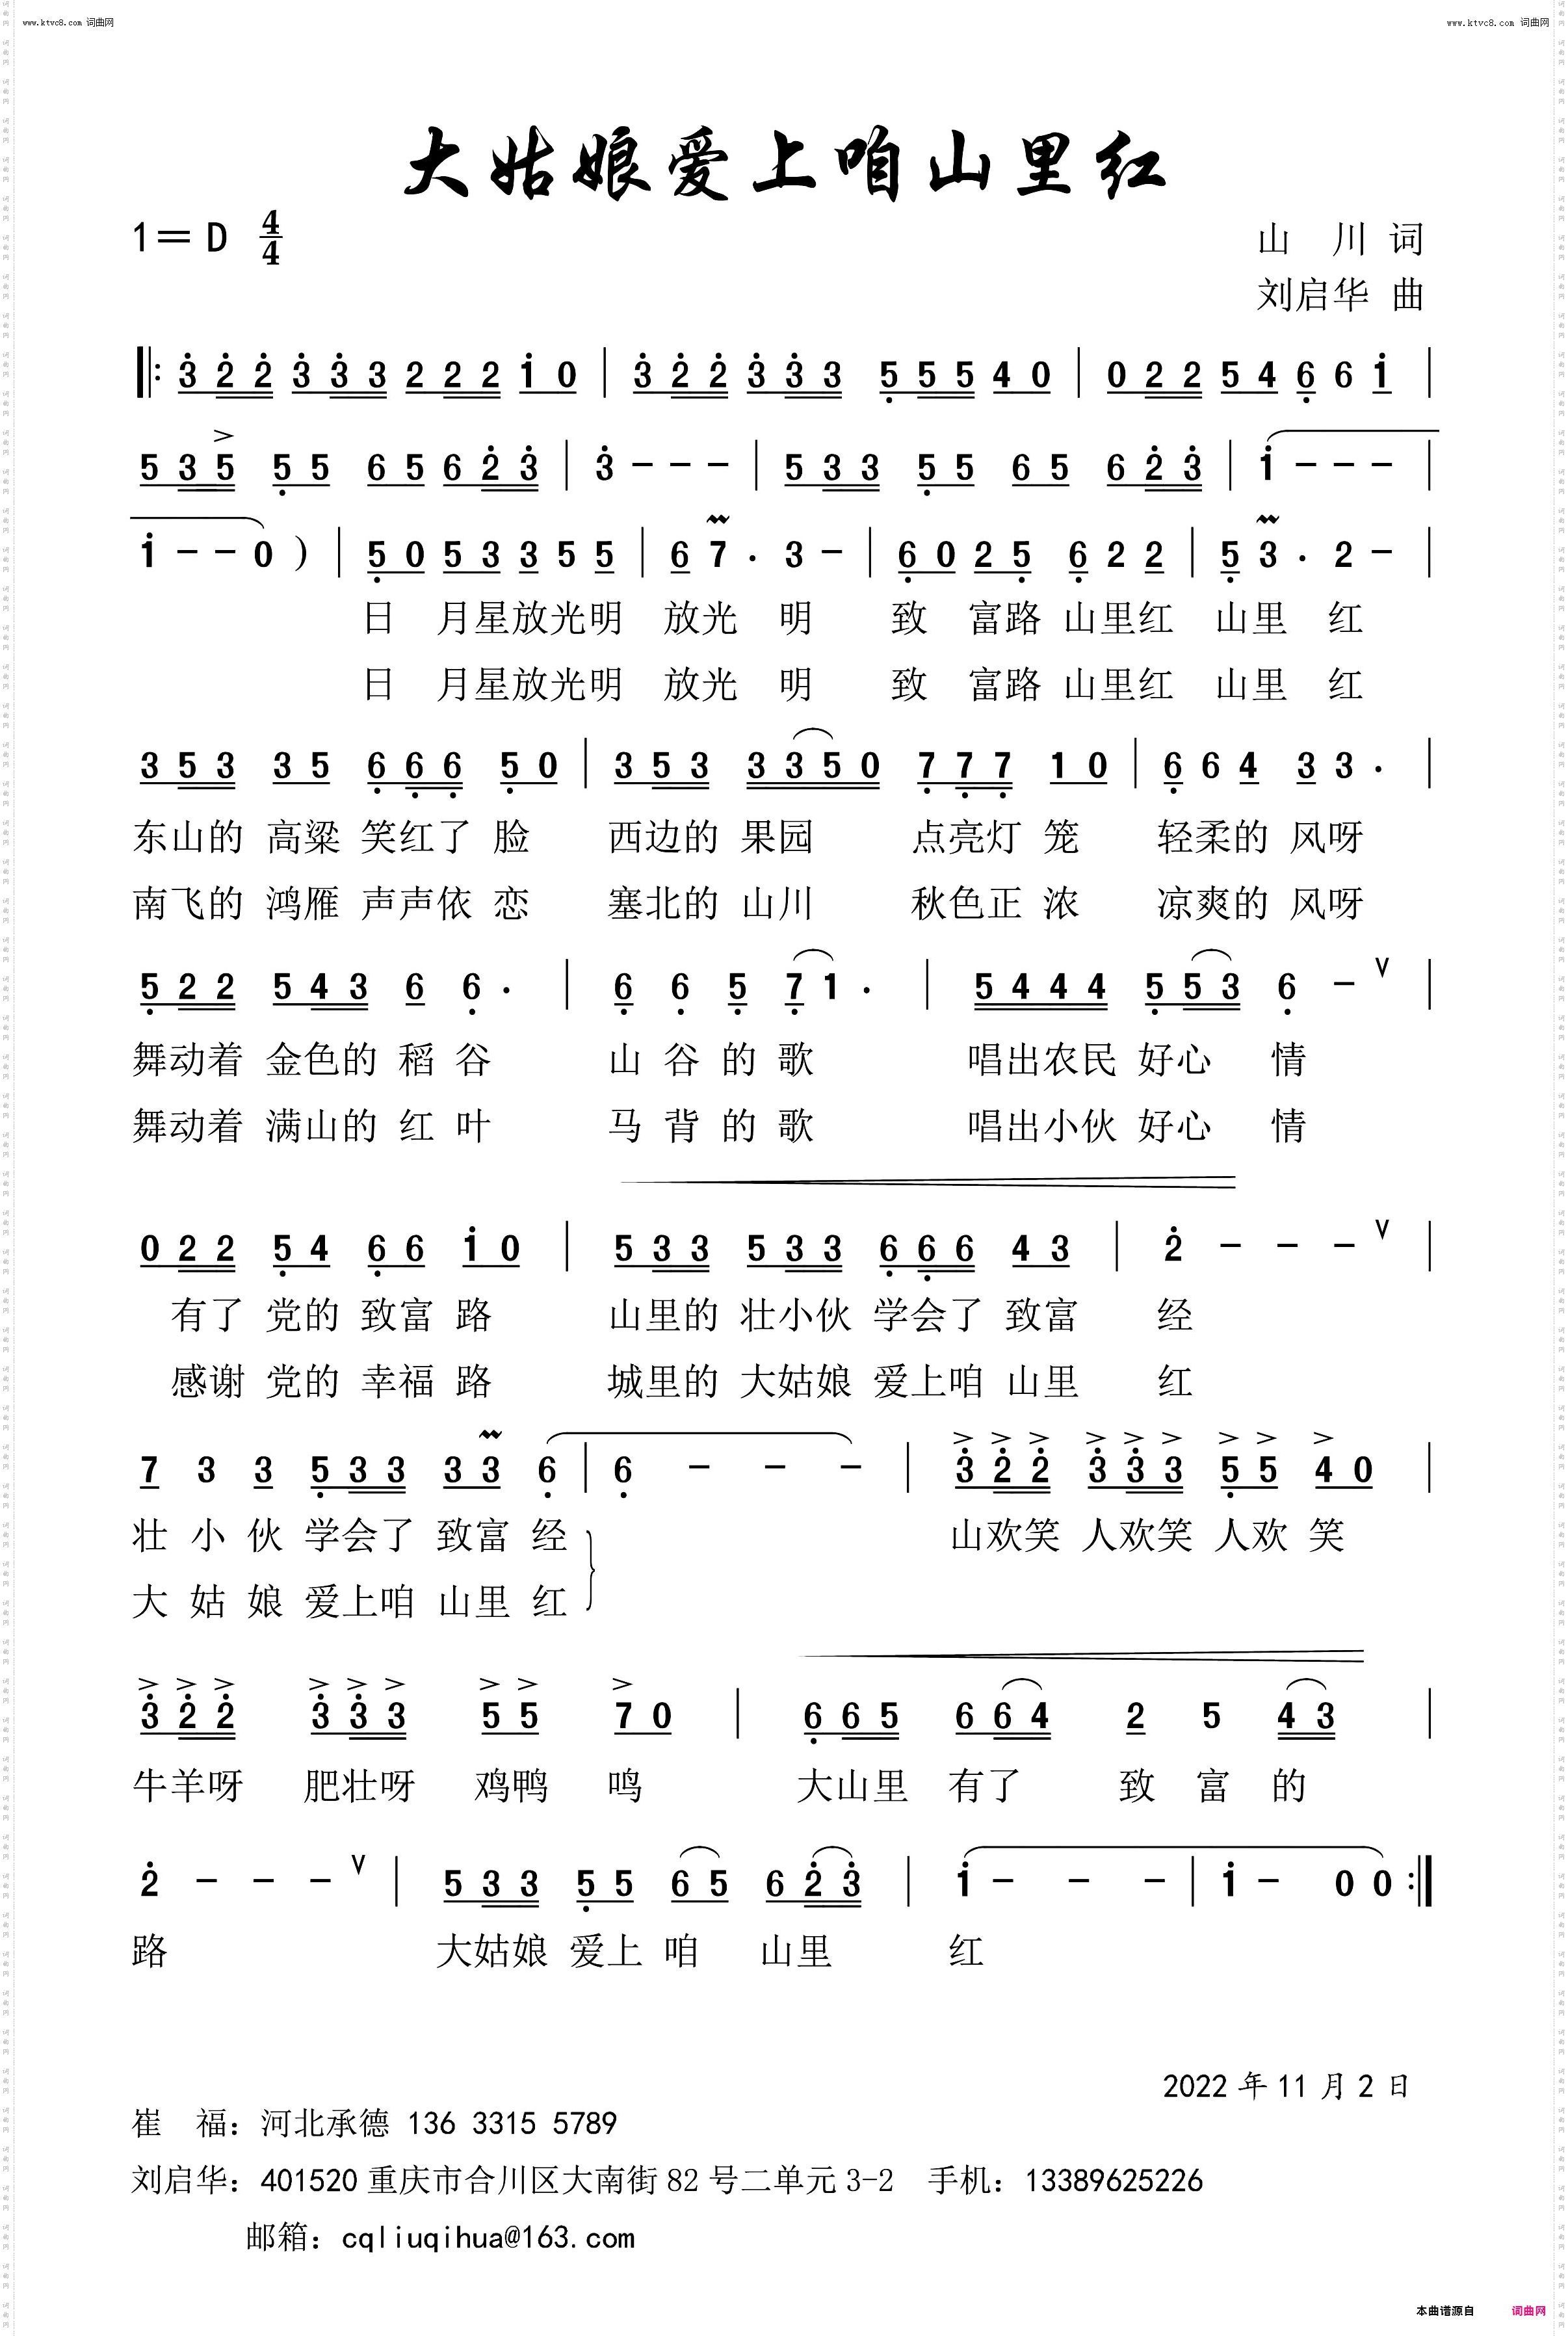 www.ktvc8.com 词曲网
www.ktvc8.com 词曲网
大姑娘爱上咱山里红
1= D 4/4
山 川 词
刘启华 曲
3 2 2 3 3 3 2 2 2 1 0 | 3 2 2 3 3 3 5 5 5 4 0 | 0 2 2 5 4 6 6 1 |
5 3 5 5 5 6 5 6 2 3 | 3 - - - | 5 3 3 5 5 6 5 6 2 3 | 1 - - - |
1 - - 0 ) | 5 0 5 3 3 5 5 | 6 7 . 3 - | 6 0 2 5 6 2 2 | 5 3 . 2 - |
日 月星放光明 放光 明 致 富路 山里红 山里 红
日 月星放光明 放光 明 致 富路 山里红 山里 红
3 5 3 3 5 6 6 6 5 0 | 3 5 3 3 3 5 0 7 7 7 1 0 | 6 6 4 3 3 . |
东山的 高粱 笑红了 脸 西边的 果园 点亮灯 笼 轻柔的 风呀
南飞的 鸿雁 声声依 恋 塞北的 山川 秋色正 浓 凉爽的 风呀
5 2 2 5 4 3 6 6 . | 6 6 5 7 1 . | 5 4 4 4 5 5 3 6 - V |
舞动着 金色的 稻 谷 山 谷 的 歌 唱出农民 好心 情
舞动着 满山的 红 叶 马 背 的 歌 唱出小伙 好心 情
0 2 2 5 4 6 6 1 0 | 5 3 3 5 3 3 6 6 6 4 3 | 2 - - - V |
有了 党的 致富 路 山里的 壮小伙 学会了 致富 经
感谢 党的 幸福 路 城里的 大姑娘 爱上咱 山里 红
7 3 3 5 3 3 3 3 6 | 6 - - - | 3 2 2 3 3 3 5 5 4 0 |
壮 小 伙 学会了 致富 经 山欢笑 人欢笑 人欢 笑
大 姑 娘 爱上咱 山里 红
3 2 2 3 3 3 5 5 7 0 | 6 6 5 6 6 4 2 5 4 3 |
牛羊呀 肥壮呀 鸡鸭 鸣 大山里 有了 致 富 的
2 - - - V | 5 3 3 5 5 6 5 6 2 3 | 1 - - - | 1 - 0 0 :|
路 大姑娘 爱上 咱 山里 红
2022 年 11 月 2 日
崔 福：河北承德 136 3315 5789
刘启华：401520 重庆市合川区大南街 82 号二单元 3-2 手机：13389625226
邮箱：cqliuqihua@163.com
本曲谱源自 词曲网